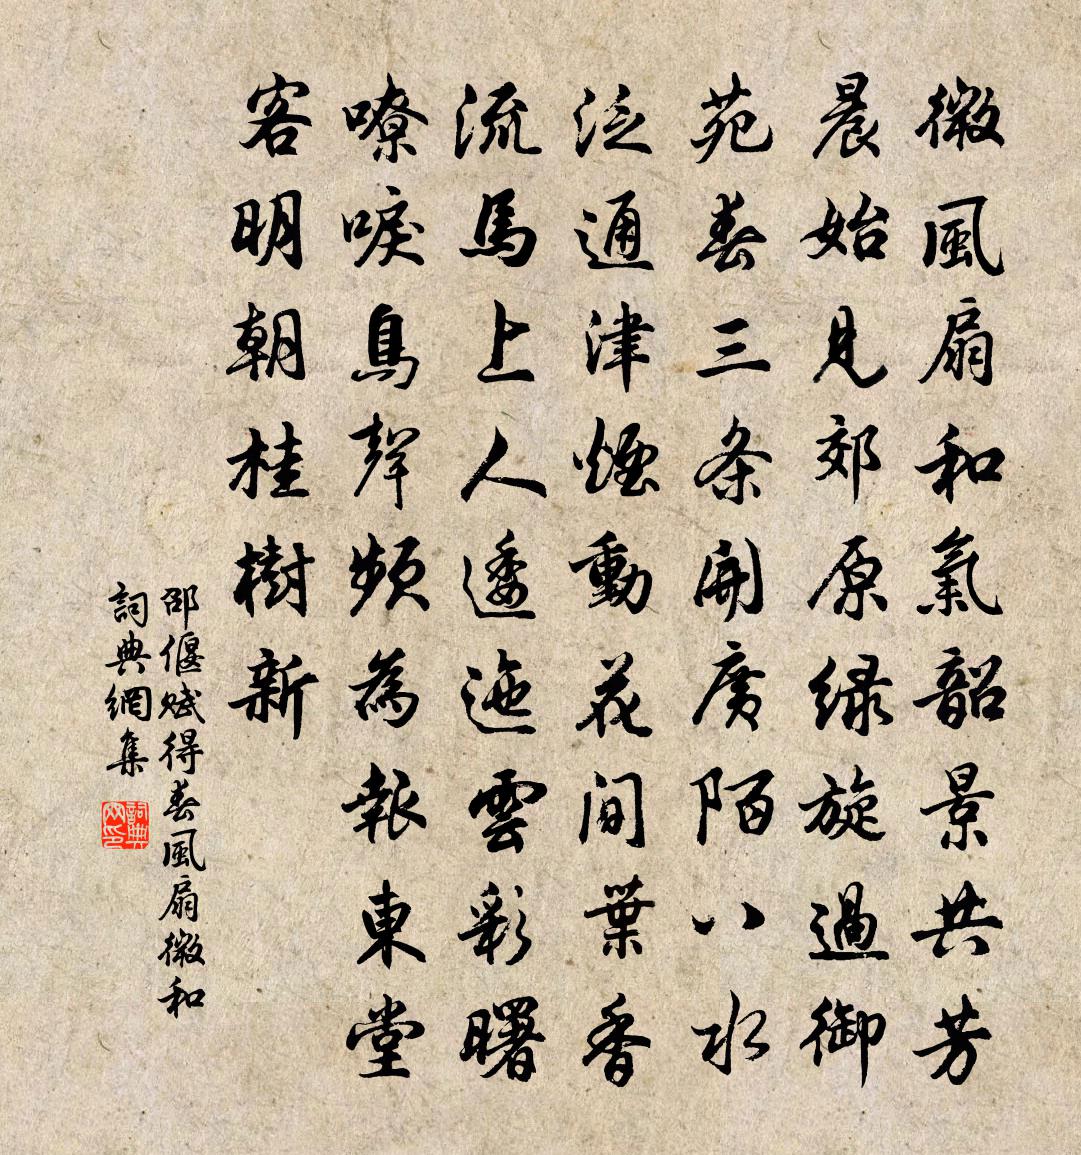 微風扇和氣韶景共芳
晨始見郊原緑旋過御
苑春三条開廣陌八水
泛通津煙動花間葉香
流馬上人逶迤雲彩曙
嘹唳鳥聲頻為報東堂
客明朝桂樹新
邵偃賦得春風扇微和
詞典網集